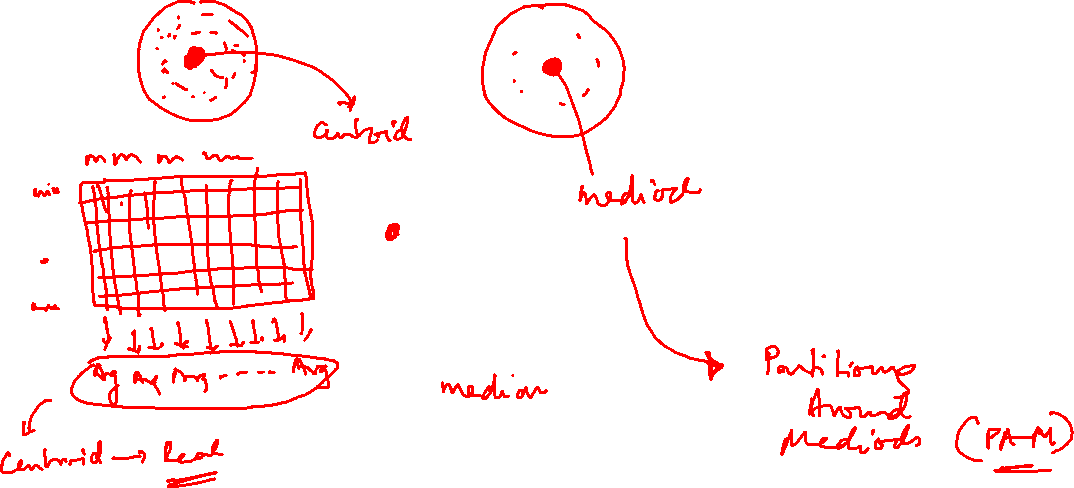 centroid
mediod
Avg Avg Avg ---- Avg
median
Centroid → Real
Partitioning
Around
Mediods
(PAM)